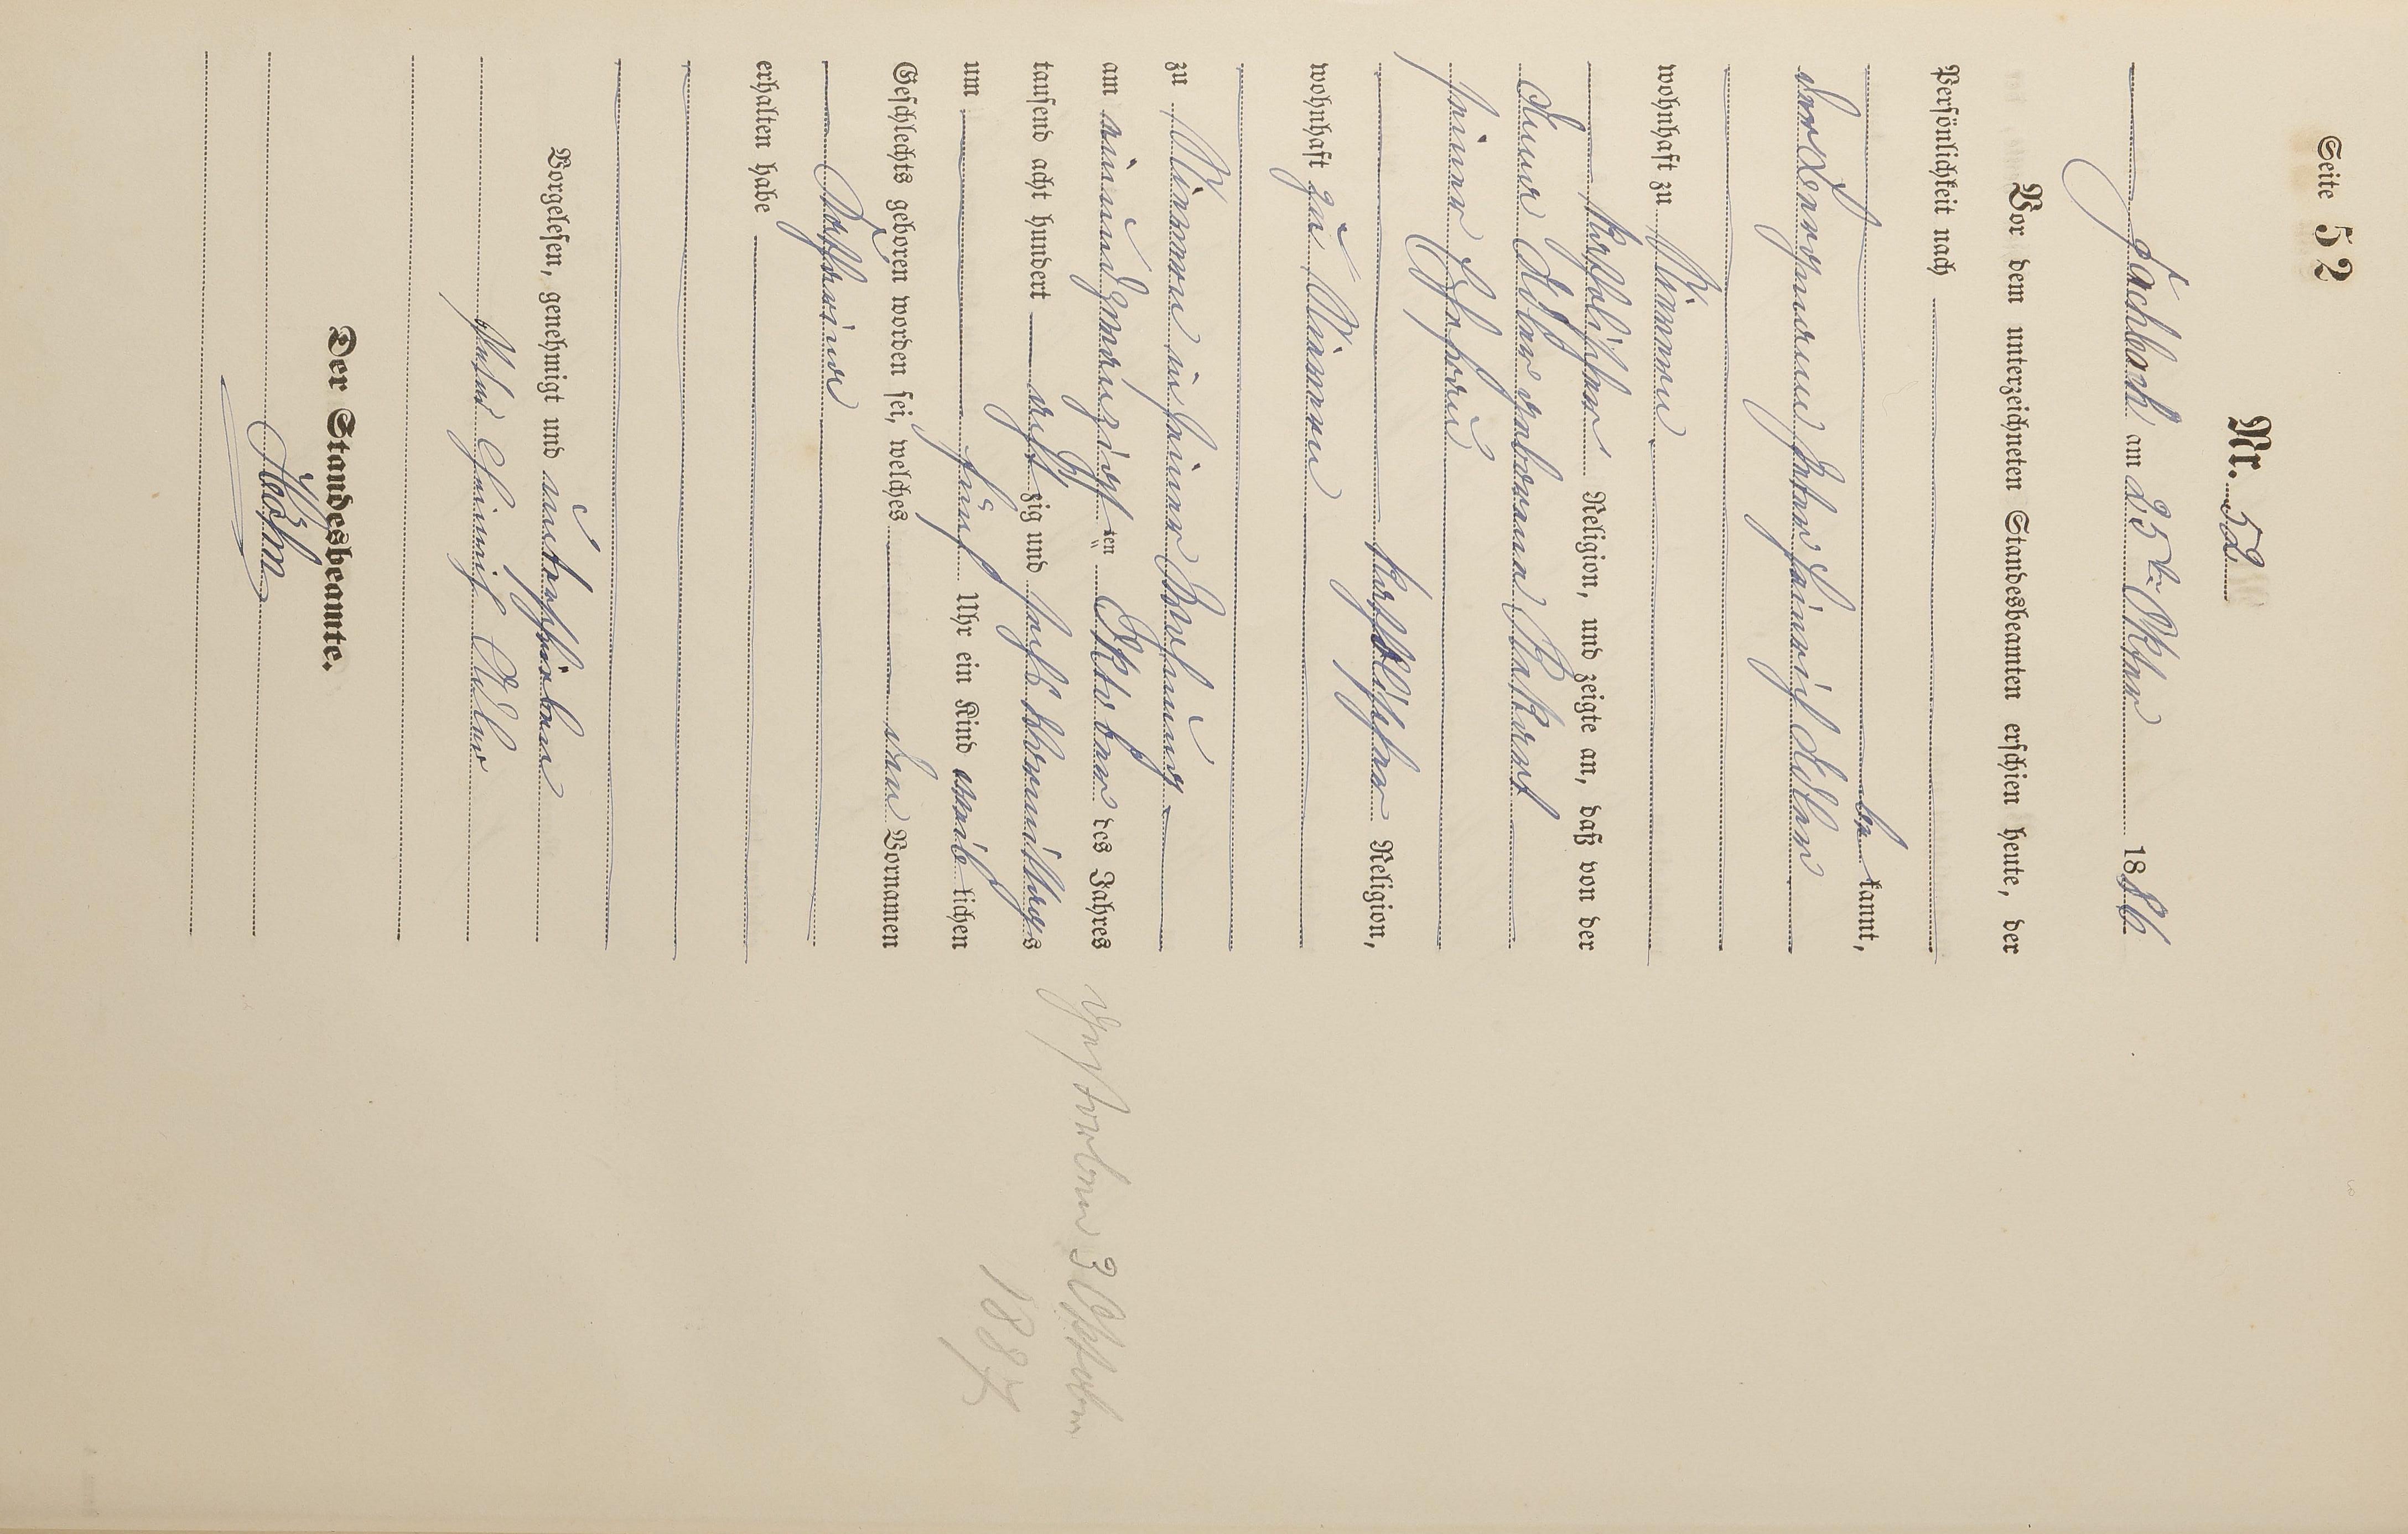 Seite 52
Nr. 52.
Fachbach am 25t. Oktber 1886
Vor dem unterzeichneten Standesbeamten erschien heute, der
Persönlichkeit nach
be kannt,
der Bergmann Peter Heinrich
wohnhaft zu Nievern
katholischer Religion, und zeigte an, daß von der
Anna geborenen
seiner Ehefrau
katholischer Religion,
wohnhaft zu Nievern
zu Nievern in seiner Wohnung
am einundzwanzigsten Oktober des Jahres
tausend acht hundert acht zig und sechs Vormittags
um fünf Uhr ein Kind weib lichen
Geschlechts geboren worden sei, welches den Vornamen
Katharina
erhalten habe
Vorgelesen, genehmigt und unterschrieben
Peter Heinrich
Der Standesbeamte.
Gestorben 3 Oktober
1887